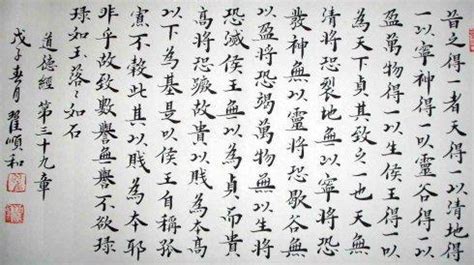 昔之得一者天得一以清地得
一以寧神得一以靈谷得一以
盈萬物得一以生侯王得一以
為天下貞其致之一也天無以
清將恐裂地無以寧將恐
發神無以靈將恐歇谷無以
盈將恐竭萬物無以生將
恐滅侯王無以為貞而貴
高將恐蹶故貴以賤為本高
以下為基是以侯王自稱孤
寡不榖此其以賤為本耶
非乎故致數譽無譽不欲琭
琭如玉落〻如石
道德經第三十九章
戊子春月翟順和